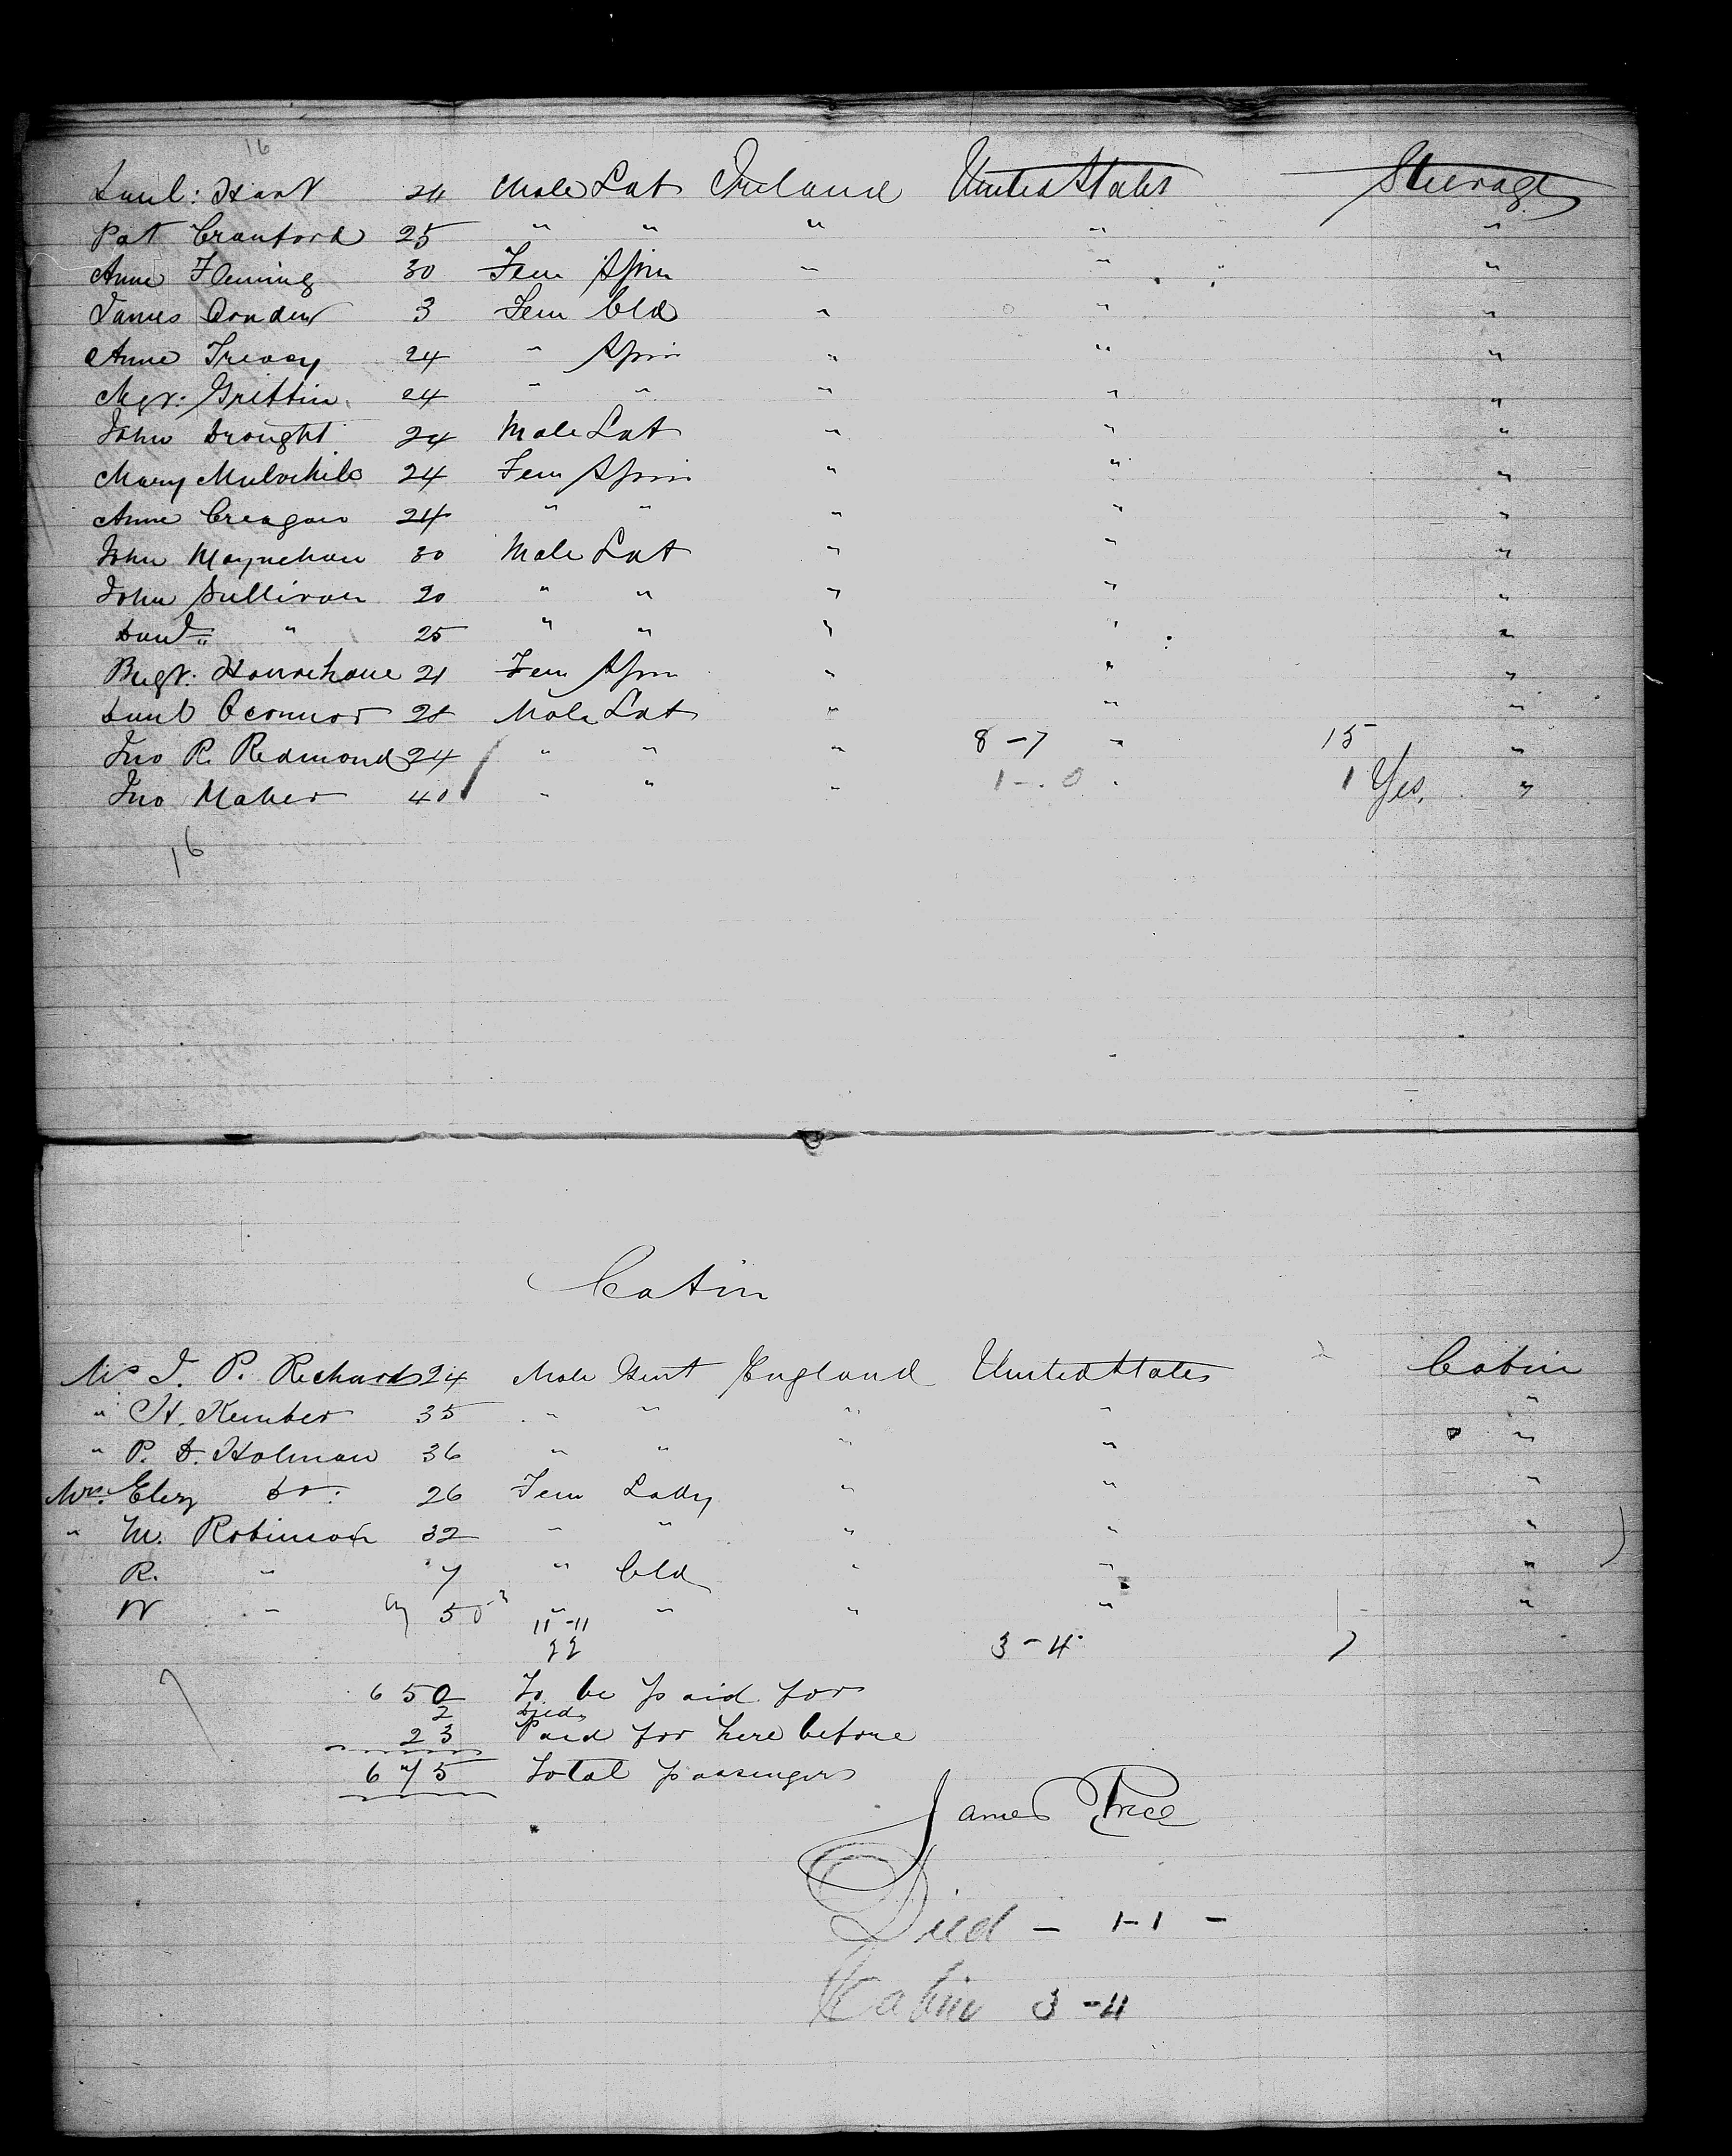 16
Danl: Hart 24 Male Lab Ireland United States Steerage
Pat Crauford 25 " " " " "
Anne Fleming 30 Fem Spin " " "
James Conden 3 Fem Cld " " "
Anne Treacy 24 " Spin " " "
Mgt: Griffin 24 " " " " "
John Drought 24 Male Lab " " "
Mary Mulvihile 24 Fem Spin " " "
Anne Creagan 24 " " " " "
John Moynehan 30 Male Lab " " "
John Sullivan 20 " " " " "
Danl " 25 " " " " "
Bugt: Hourehane 21 Fem Spin " " "
Danl Oconnor 28 Male Lab " " "
Jno R. Redmond 24 " " " 8-7 " 15 "
Jno Maher 40 " " " 1-0 " 1 Yes, "
16
Cabin
Mr J. P. Richards 24 Male Gent England United States Cabin
" H. Kember 35 " " " " "
" P. D. Holman 36 " " " " "
Mrs. Eliz do: 26 Fem Lady " " "
" M. Robinson 32 " " " " "
R. " 7 " Cld " " "
W " 5 " " " " "
11-11
22 3-4 7
7
650 To be paid for
2 Died
23 Paid for here before
675 Total passengers
James Price
Died - 1-1 -
Cabin 3-4